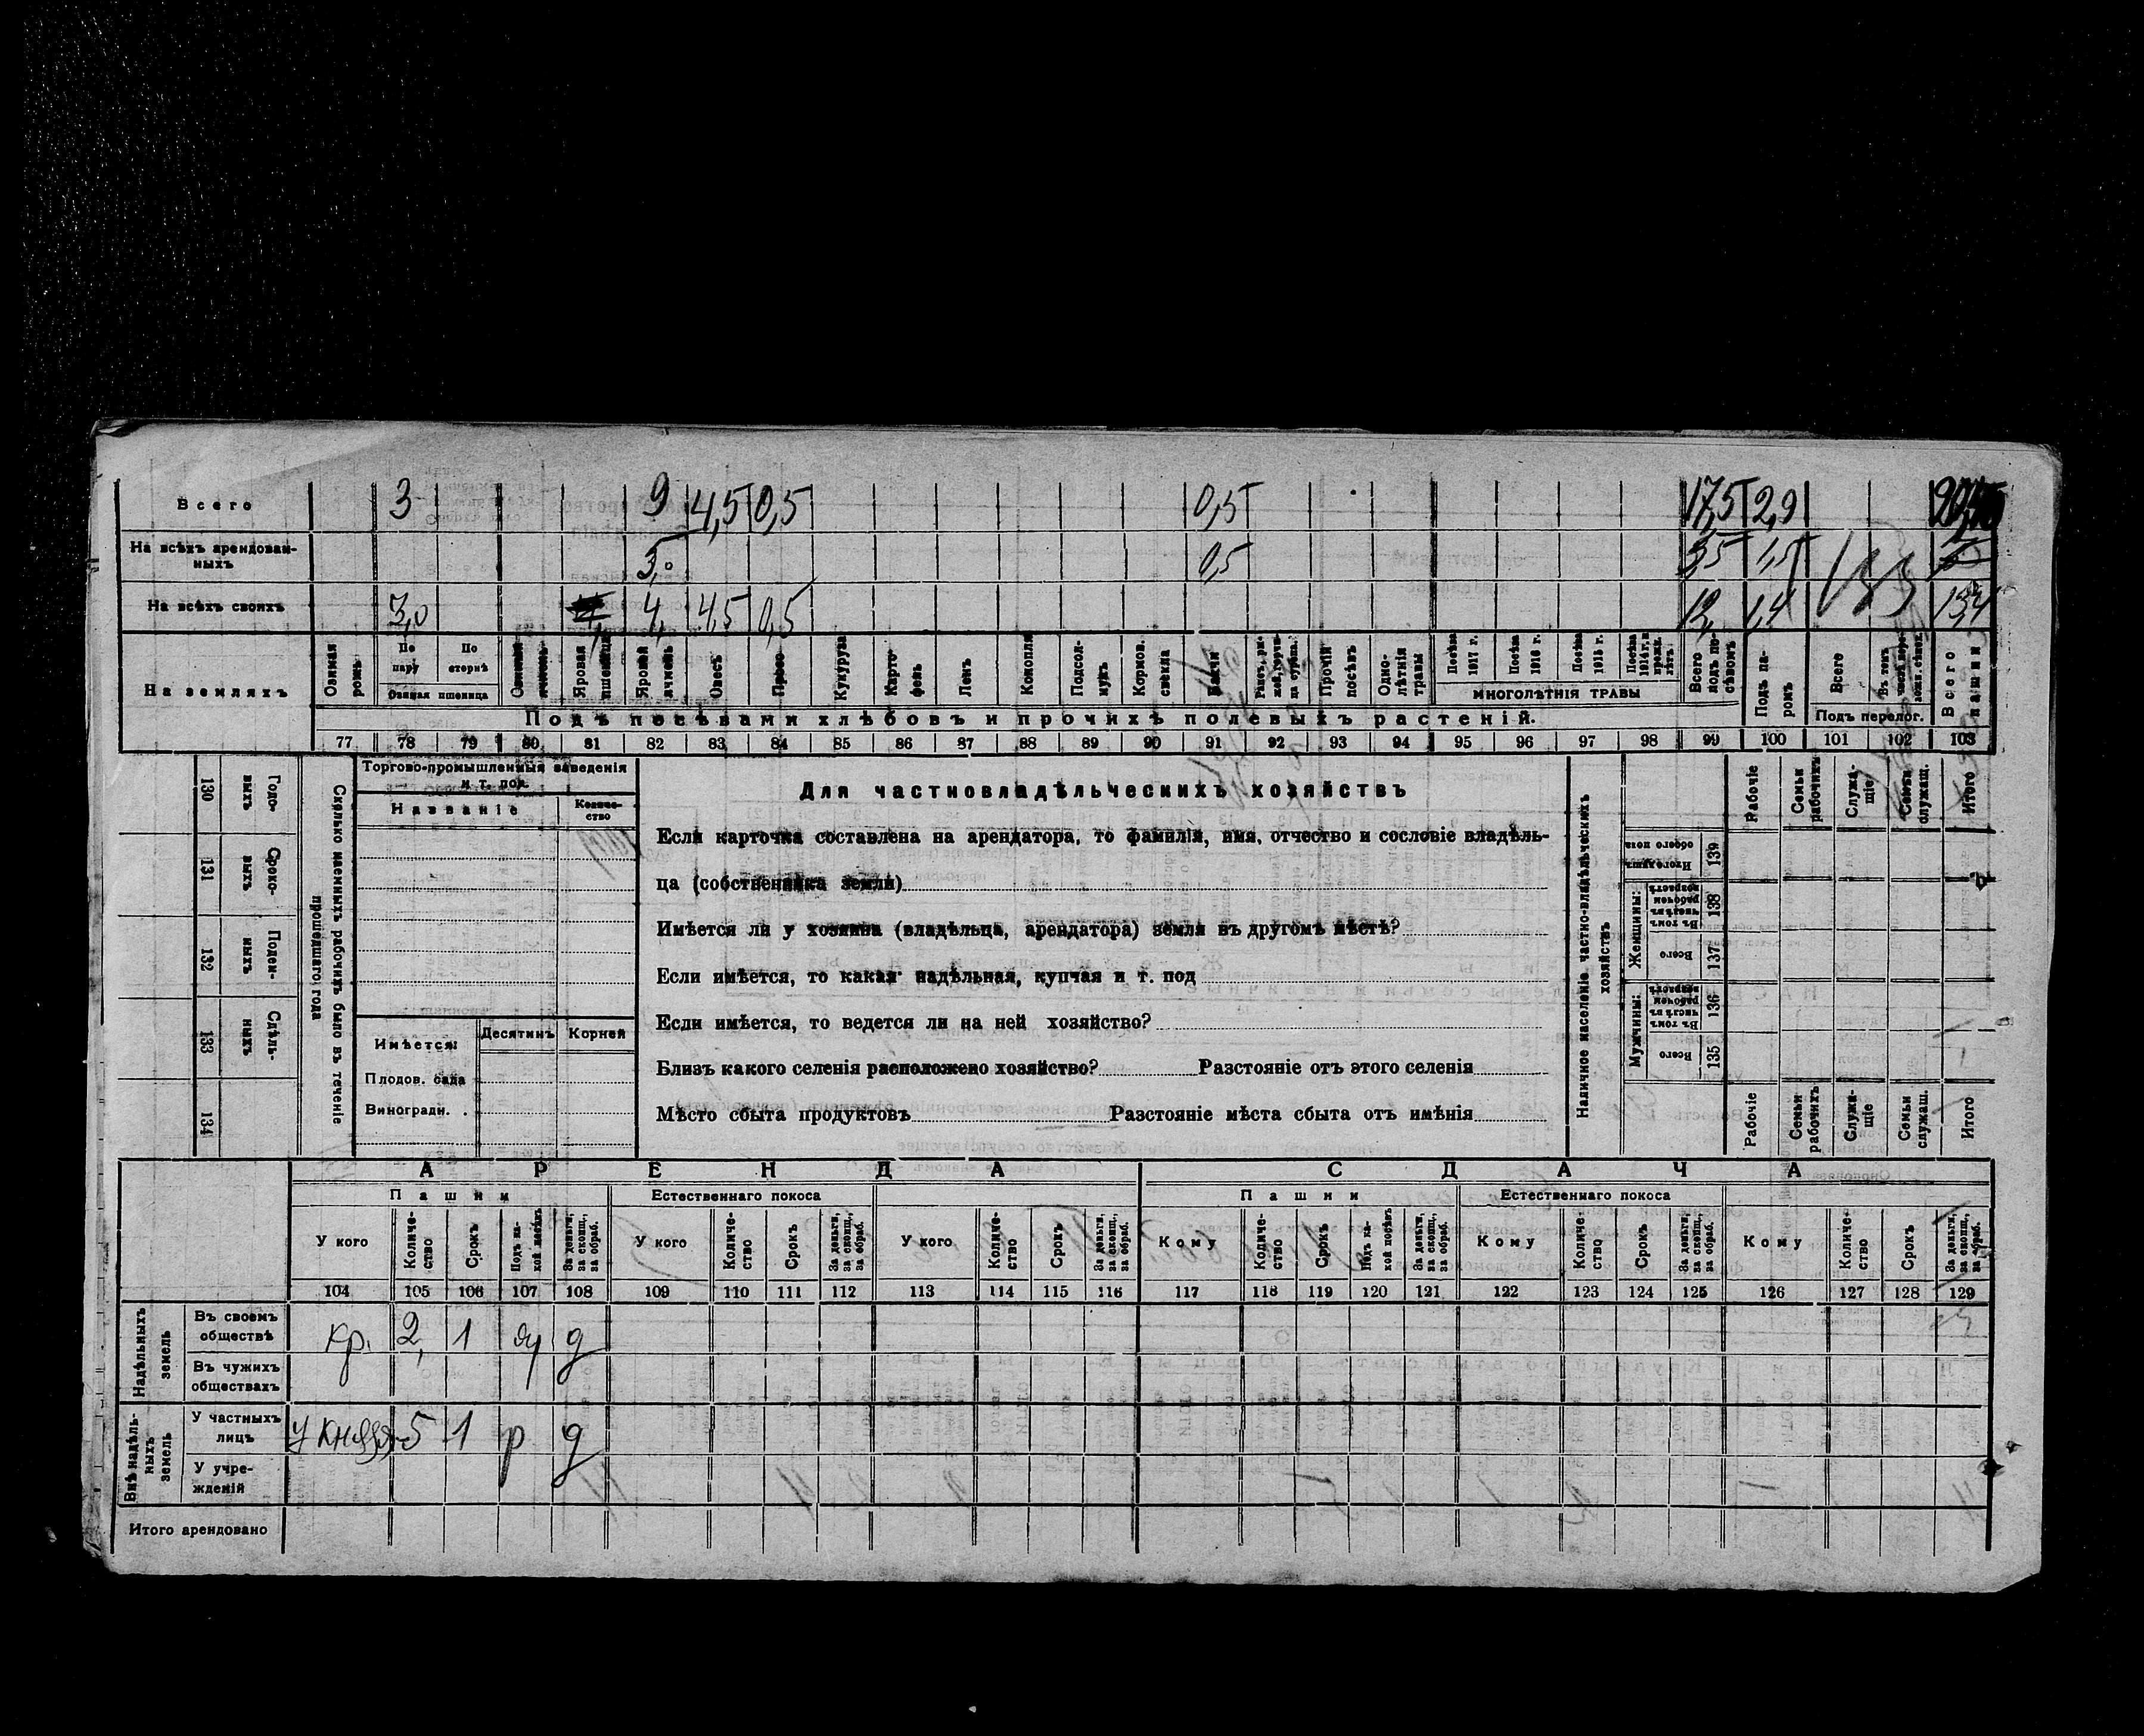 Всего 3 9 4,5 0,5 0,5 17,5 2,9
На всѣхъ арендован-
ныхъ 5,0 0,5 1,5
На всѣхъ своихъ 3,0 4, 4,5 0,5 12, 1,4
На земляхъ
Озимая рожь
По пару
По стернѣ
Озимая пшеница
Яровая пшеница
Яровой ячмень
Овесъ
Просо
Кукуруза
Карто-
фель
Ленъ
Конопля
Подсол-
нухъ
Кормов.
свекла
Бахчи
Прочій
посѣвъ
Одно-
лѣтнія
травы
Посѣва
1917 г.
Посѣва
1916 г.
Посѣва
1915 г.
МНОГОЛѢТНІЯ ТРАВЫ
Всего
подъ по-
сѣвомъ
Подъ па-
ромъ
Всего
Подъ перелог.
Всего
пашни
Подъ посѣвами хлѣбовъ и прочихъ полевыхъ растеній.
77 78 79 80 81 82 83 84 85 86 87 88 89 90 91 92 93 94 95 96 97 98 99 100 101 102 103
130 Годо-
выхъ
131 Сроко-
выхъ
132 Поден-
ныхъ
133 Сдѣль-
ныхъ
134
Сколько наемныхъ рабочихъ было въ теченіе
прошедшаго года
Торгово-промышленныя заведенія
и т. под.
Названіе
Количе-
ство
Имѣется:
Десятинъ
Корней
Плодов. сада
Виноградн.
Для частновладѣльческихъ хозяйствъ
Если карточка составлена на арендатора, то фамилія, имя, отчество и сословіе владѣль-
ца (собственника земли)
Имѣется ли у хозяина (владѣльца, арендатора) земля въ другомъ мѣстѣ?
Если имѣется, то какая надѣльная, купчая и т. под
Если имѣется, то ведется ли на ней хозяйство?
Близъ какого селенія расположено хозяйство? Разстояніе отъ этого селенія
Мѣсто сбыта продуктовъ Разстояніе мѣста сбыта отъ имѣнія
Наличное населеніе частно-владѣльческихъ
хозяйствъ
Рабочіе
Семьи
рабочихъ
Служа-
щіе
Семьи
служащ.
Итого
Итого душъ
обоего пола
139
Женщины:
Въ томъ
числѣ въ
рабочемъ
возрастѣ
138
Всего
137
Мужчины:
Въ томъ
числѣ въ
рабочемъ
возрастѣ
136
Всего
135
Рабочіе
Семьи
рабочихъ
Служа-
щіе
Семьи
служащ.
Итого
АРЕНДА СДАЧА
Пашни Естественнаго покоса Пашни Естественнаго покоса
У кого
Количе-
ство
Срокъ
Подъ ка-
кой посѣвъ
За деньги,
за скопщ.,
за обраб.
У кого
Количе-
ство
Срокъ
За деньги,
за скопщ.,
за обраб.
У кого
Количе-
ство
Срокъ
За деньги,
за скопщ.,
за обраб.
Кому
Количе-
ство
Срокъ
Подъ ка-
кой посѣвъ
За деньги,
за скопщ.,
за обраб.
Кому
Количе-
ство
Срокъ
За деньги,
за скопщ.,
за обраб.
Кому
Количе-
ство
Срокъ
За деньги,
за скопщ.,
за обраб.
104 105 106 107 108 109 110 111 112 113 114 115 116 117 118 119 120 121 122 123 124 125 126 127 128 129
Надѣльныхъ
земель
Въ своемъ
обществѣ кр. 2, 1 д
Въ чужихъ
обществахъ
Внѣ надѣль-
ныхъ
земель
У частныхъ
лицъ У князя 5 1 р д
У учре-
жденій
Итого арендовано